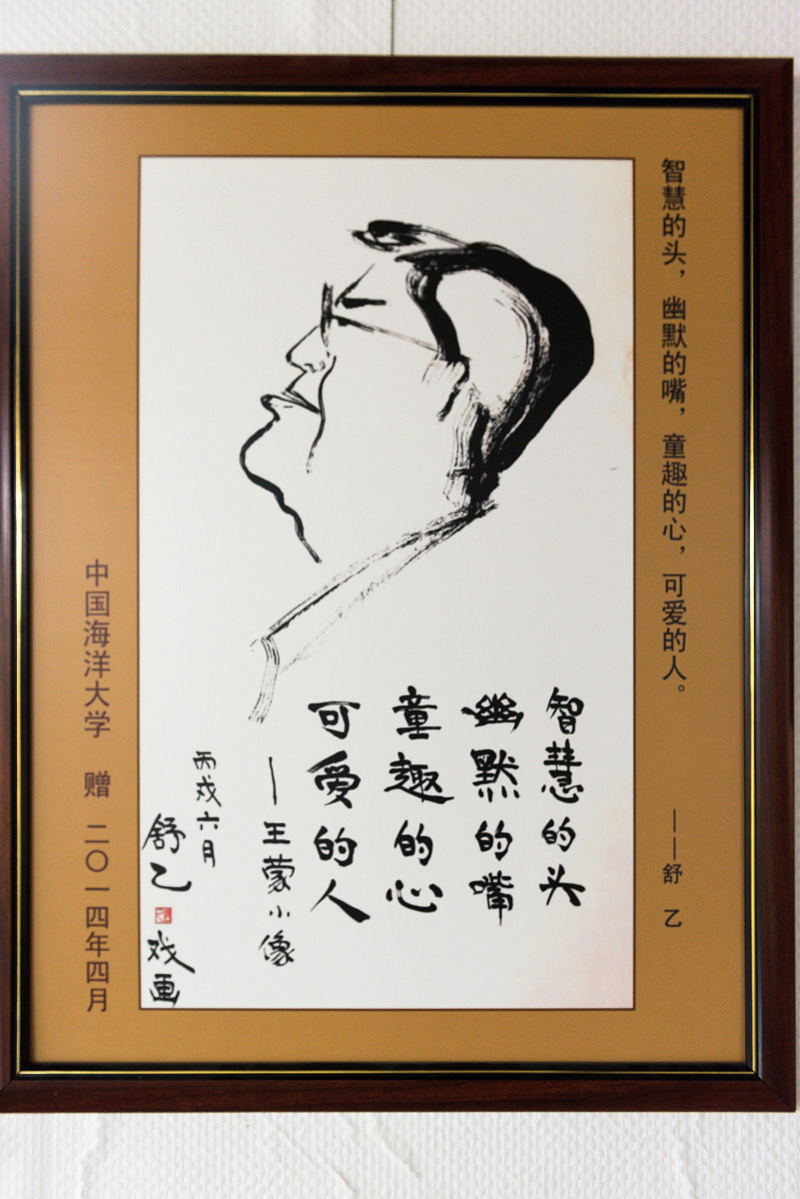 智慧的头，幽默的嘴，童趣的心，可爱的人。
——舒 乙
智慧的头
幽默的嘴
童趣的心
可爱的人
—王蒙小像
丙戌六月
舒乙
戏画
中国海洋大学 赠 二〇一四年四月